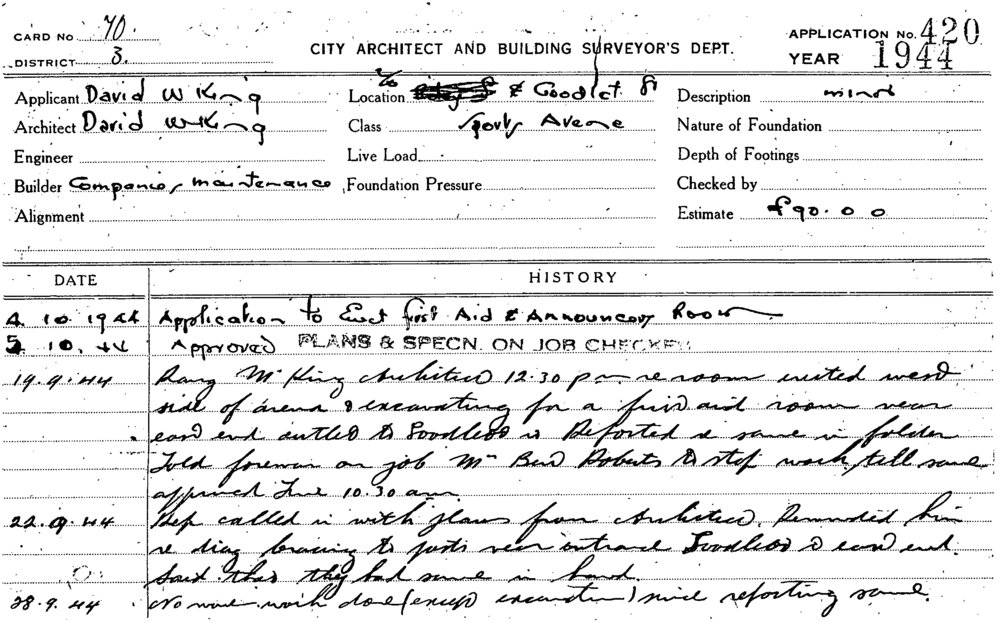 CARD No 70.
DISTRICT 3.
CITY ARCHITECT AND BUILDING SURVEYOR'S DEPT.
APPLICATION No. 420
YEAR 1944
Applicant David W King
Architect David W King
Engineer
Builder Companies maintenance
Alignment
Location & Goodlet St
Class Sports Avenue
Live Load
Foundation Pressure
Description minor
Nature of Foundation
Depth of Footings
Checked by
Estimate £90.0 0
DATE HISTORY
4 10 1944 Application to Erect first Aid & Announcers Room
5 10 44 Approved PLANS & SPECN. ON JOB CHECKED
19.9.44 Rang Mr King Architect 12.30 pm re room erected west
side of arena & excavating for a first aid room near
east end outlet to Goodlet St Reported re same in folder
Told foreman on job Mr Bert Roberts to stop work till same
approved Time 10.30 am.
22.9.44 Rep called in with plans from Architect. Reminded him
re diag bracing to posts near entrance Goodlet St east end.
Said that they had same in hand.
28.9.44 No more work done (except excavation) since reporting same.